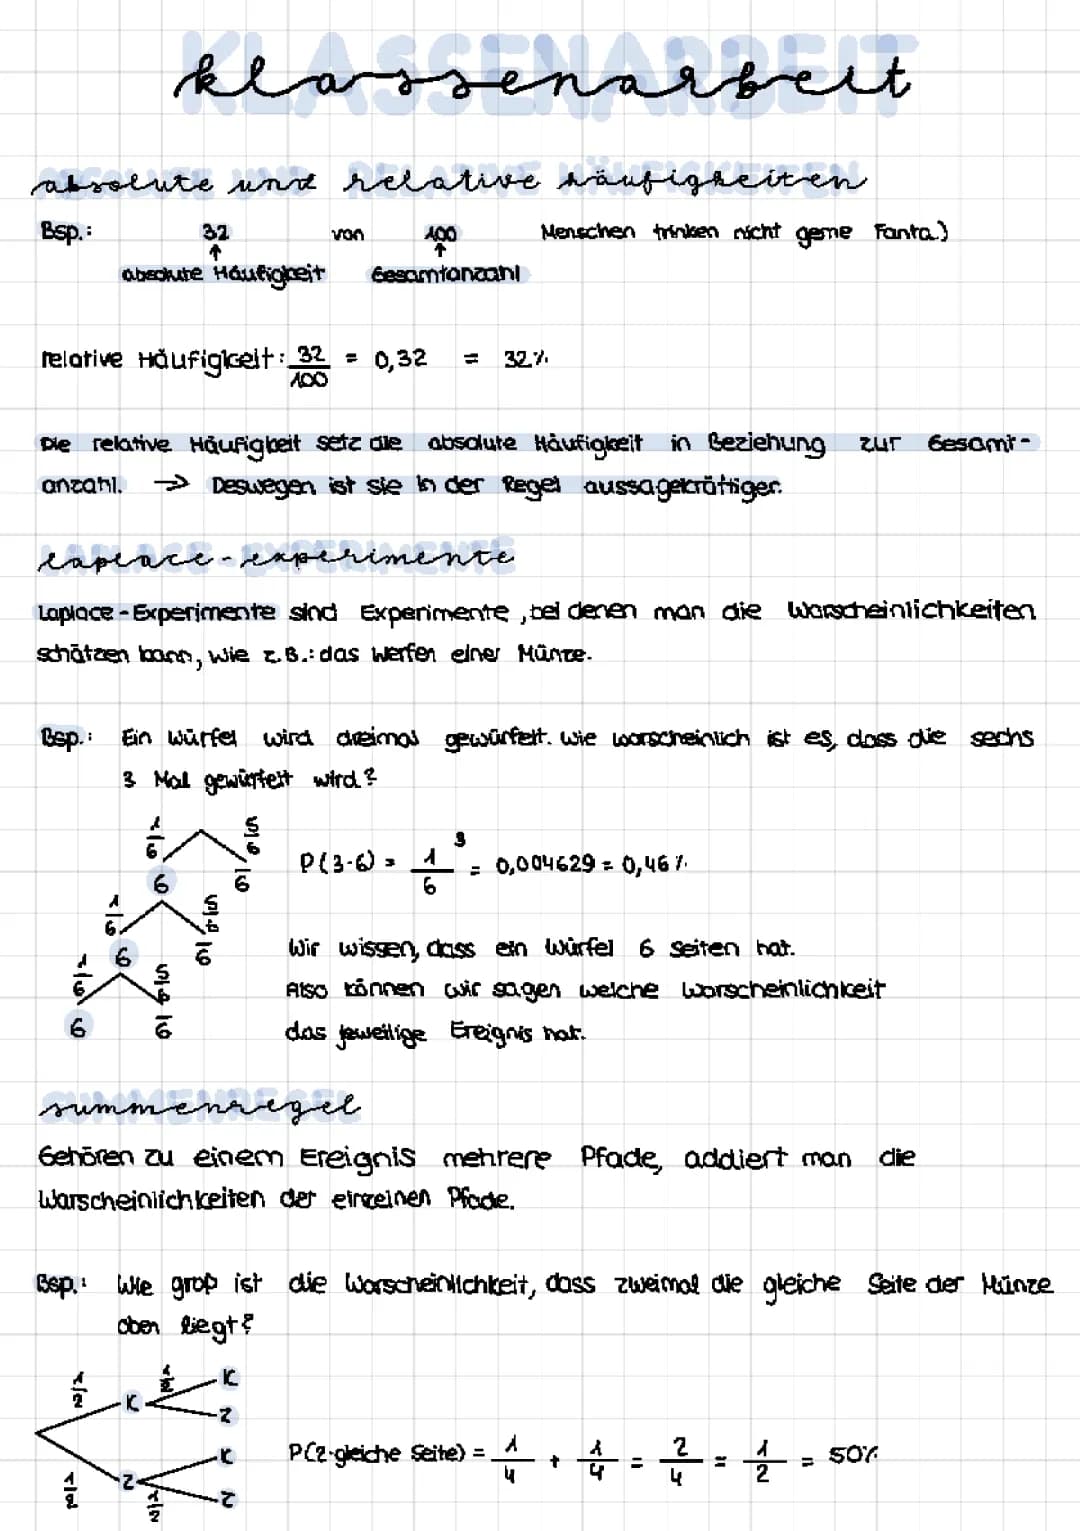 KLASSENARBEIT
klassenarbeit
absolute und relative häufigkeiten
Bsp.: 32 von 100 Menschen trinken nicht gerne Fanta.)
absolute Häufigkeit Gesamtanzahl
relative Häufigkeit: 32/100 = 0,32 = 32%
Die relative Häufigkeit setz die absolute Häufigkeit in Beziehung zur Gesamt-
anzahl. → Deswegen ist sie in der Regel aussagekräftiger.
laplace-experimente
Laplace-Experimente sind Experimente, bei denen man die Warscheinlichkeiten
schätzen kann, wie z.B.: das Werfen einer Münze.
Bsp.: Ein Würfel wird dreimal gewürfelt. Wie warscheinlich ist es, dass die sechs
3 Mal gewürfelt wird?
1/6 5/6
6 6̅
1/6 5/6
6 6̅
1/6 5/6
6 6̅
P(3·6) = 1/6 ³ = 0,004629 = 0,46%
Wir wissen, dass ein Würfel 6 Seiten hat.
Also können wir sagen welche Warscheinlichkeit
das jeweilige Ereignis hat.
summenregel
Gehören zu einem Ereignis mehrere Pfade, addiert man die
Warscheinlichkeiten der einzelnen Pfade.
Bsp.: Wie groß ist die Warscheinlichkeit, dass zweimal die gleiche Seite der Münze
oben liegt?
1/2 K 1/2 K
Z
1/2 Z 1/2 K
Z
P(2·gleiche Seite) = 1/4 + 1/4 = 2/4 = 1/2 = 50%